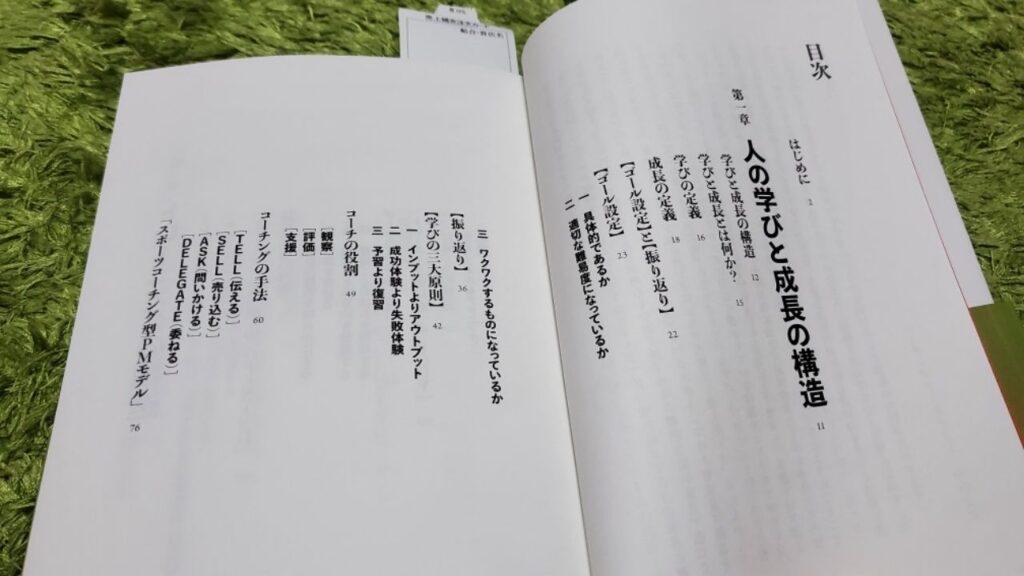 目次
はじめに 2
第一章 人の学びと成長の構造 11
学びと成長の構造 12
学びと成長とは何か? 15
学びの定義 16
成長の定義 18
【ゴール設定】と【振り返り】 22
【ゴール設定】 23
一 具体的であるか
二 適切な難易度になっているか
三 ワクワクするものになっているか
【振り返り】 36
【学びの三大原則】 42
一 インプットよりアウトプット
二 成功体験より失敗体験
三 予習より復習
コーチの役割 49
[観察]
[評価]
[支援]
コーチングの手法 60
[TELL(伝える)]
[SELL(売り込む)]
[ASK(問いかける)]
[DELEGATE(委ねる)]
「スポーツコーチング型PMモデル」 76